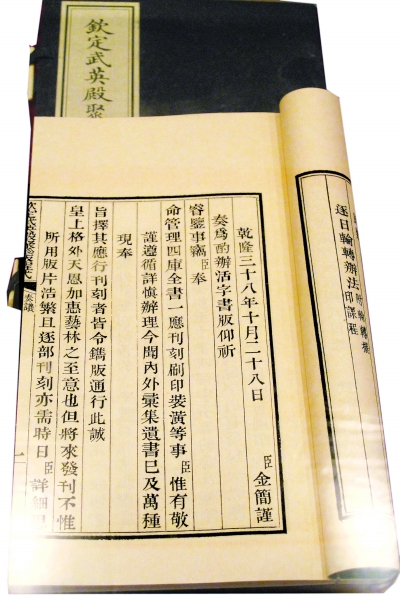 欽定武英殿聚
逐日輪轉辦法
印課程
乾隆三十八年十月二十八日 臣金簡謹
奏為酌辦活字書版仰祈
睿鑒事竊臣奉
命管理四庫全書一應刊刻刷印裝潢等事臣惟有敬
謹遵循詳慎辦理今聞內外彙集遺書已及萬種
現奉
旨擇其應行刊刻者皆令鐫版通行此誠
皇上格外天恩加惠藝林之至意也但將來發刊不惟
所用版片浩繁且逐部刊刻亦需時日臣詳細
奏議
一